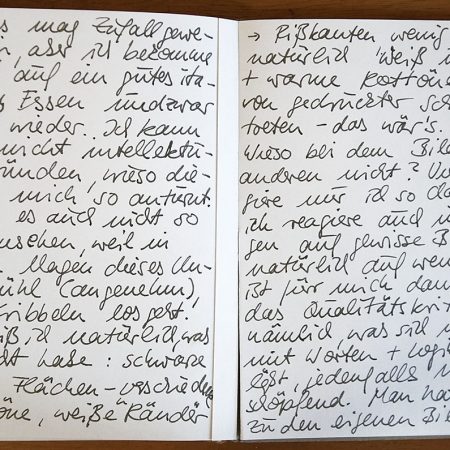 s mag Zufall gewe-
, aber ich bekomme
auf ein gutes ita-
Essen undzwar
wieder. Ich kann
nicht intellektu-
ründen, wieso die-
mich so anturnt.
es auch nicht so
ansehen, weil in
Magen dieses Un-
ühl (angenehm),
ribbeln losgeht.
iß ich natürlich, was
habe: schwarze
Flächen – verschieden
öne, "weiße" Ränder
→ Rißkanten wenig
natürlich 'weiß i
+ warme Rottöne
von gedruckter Sch
treten – das wär's.
Wieso bei dem Bild
anderen nicht?
giere nur ich so da
ich reagiere auch
gen auf gewisse B
natürlich auf wen
ist für mich dan
das Qualitätskri
nämlich, was sich
mit Worten + Logi
löst, jedenfalls n
schöpfend. Man
zu den eigenen Bi